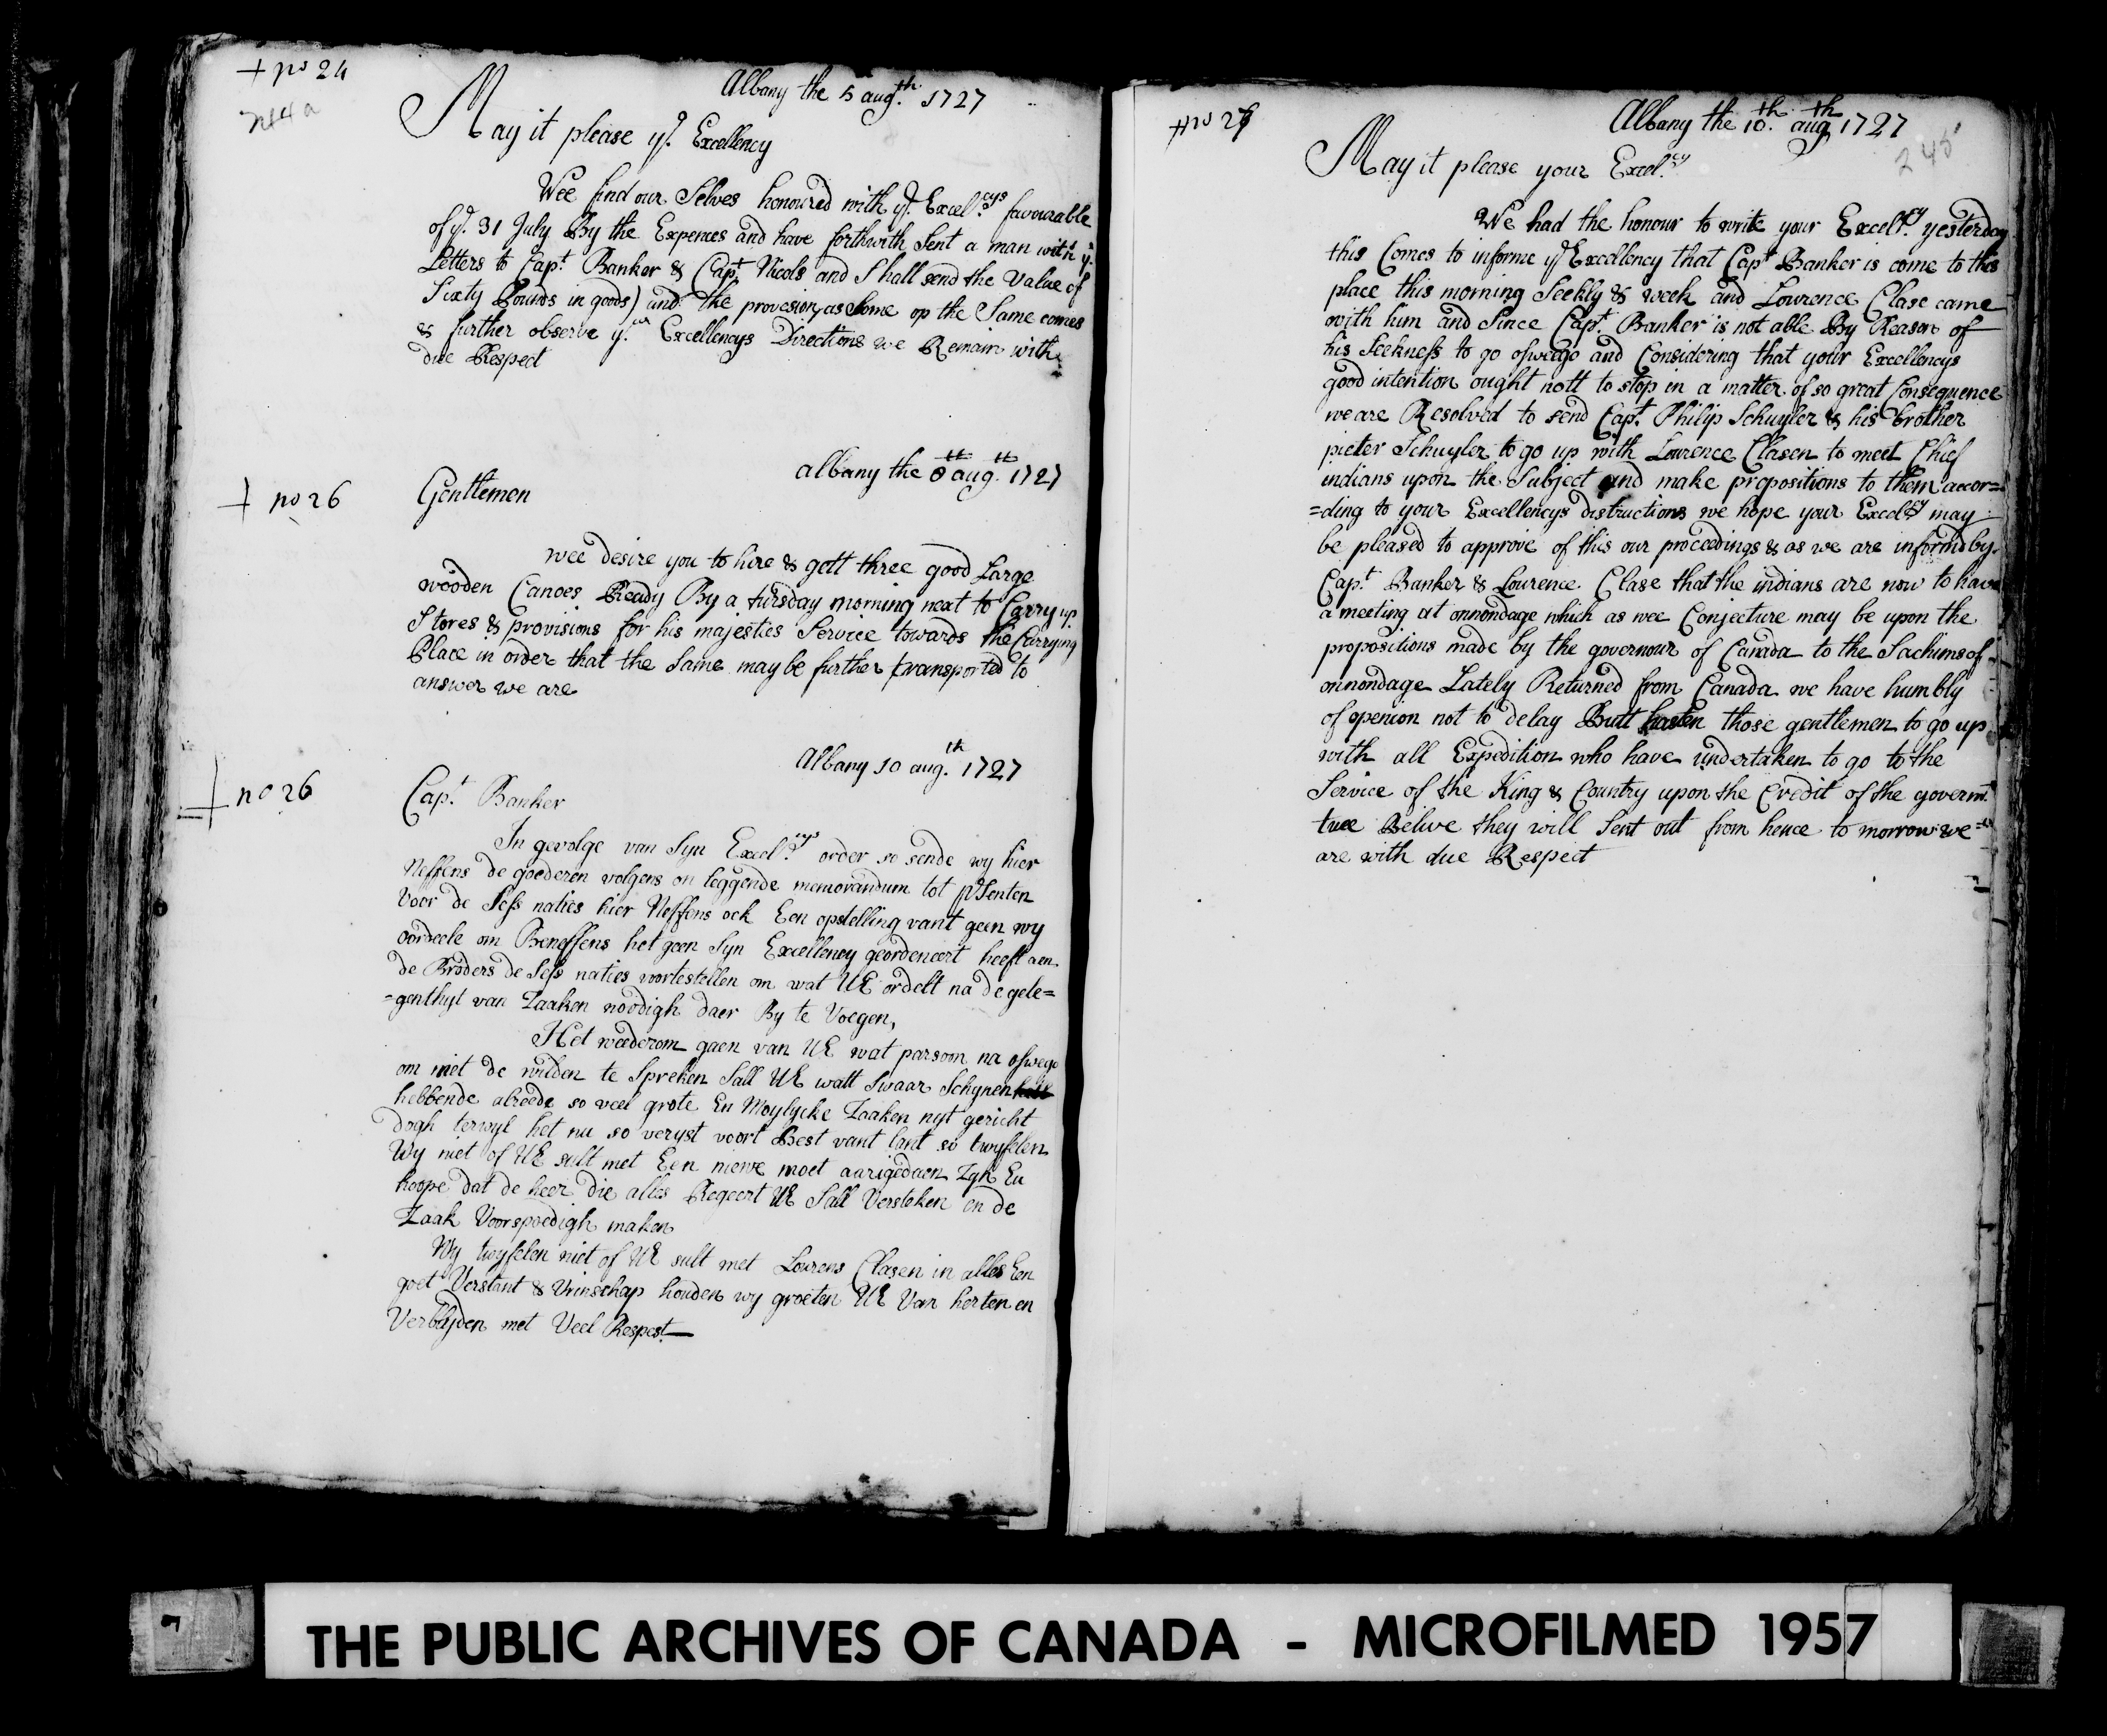 + no 24
244a
Albany the 5 augth. 1727
May it please yr. Excellency
Wee find our Selves honoured with yr. Excel.cys favourable
of ye. 31 July By the Expences and have forthwith Sent a man with ye.
Letters to Capt. Banker & Capt Nicols and Shall send the Value of
Sixty Pounds in goods) and the provesion, as Some op the Same comes
& further observe yr. Excellencys Directions we Remain with
due Respect
albany the 8th augth. 1727
+ no 26
Gentlemen
wee desire you to hire & gett three good Large
wooden Canoes Ready By a tursday morning next to Carry up
Stores & provisions for his majesties Service towards the Carrying
Place in order that the Same may be further transported to
answer we are
Albany 10 augth. 1727
+ no 26
Capt. Banker
In gevolge van Syn Excel.cys order so sende wy hier
Neffens de goederen volgens on leggende memorandum tot prsenten
Voor de Sess naties hier Neffens ock Een opstelling vant geen wy
oordeele om Beneffens het geen Syn Excellency geordeneert heeft aen
de Broders de Sess naties voortestellen om wat UE ordelt na de gele=
=genthyt van Zaaken noodigh daer By te Voegen,
Het weederom gaen van UE wat parsoon na oswego
om met de wilden te Spreken Sall UE watt Swaar Schynen
hebbende alreede so veel grote En Moylycke Zaaken uyt gericht
dogh terwyl het nu so veryst voort Best vant lant so twyfelen
Wy niet of UE sult met Een niewe moet aangedaen Zyn En
hoope dat de heer die alles Regeert UE Sall Versteken en de
Zaak Voorspoedigh maken
Wy twyfelen niet of UE sult met Lourens Clasen in alles Een
goet Verstant & Vrinschap houden wy groeten UE Van herten en
Verblyden met Veel Respect
+ no 27
Albany the 10th. augth 1727
245
May it please your Excel.cy
We had the honour to write your Excel.cy yesterday
this Comes to informe yr Excellency that Capt Banker is come to this
place this morning Seekly & week and Lourence Clase came
with him and Since Capt. Banker is not able By Reason of
his Seekness to go osweego and Considering that your Excellencys
good intention ought nott to stop in a matter of so great Consequence
we are Resolved to send Capt. Philip Schuyler & his brother
pieter Schuyler to go up with Lourence Clasen to meet Chief
indians upon the Subject and make propositions to them accor=
=ding to your Excellencys distructions we hope your Excelcy may
be pleased to approve of this our proceedings & as we are informd by
Capt. Banker & Lourence Clase that the indians are now to have
a meeting at onnondage which as wee Conjecture may be upon the
propositions made by the governour of Canada to the Sachims of
onnondage Lately Returned from Canada we have humbly
of openion not to delay Butt hasten those gentlemen to go up
with all Expedition who have undertaken to go to the
Service of the King & Country upon the Credit of the governm.
twee Belive they will Sent out from hence to morrow we
are with due Respect
THE PUBLIC ARCHIVES OF CANADA - MICROFILMED 1957